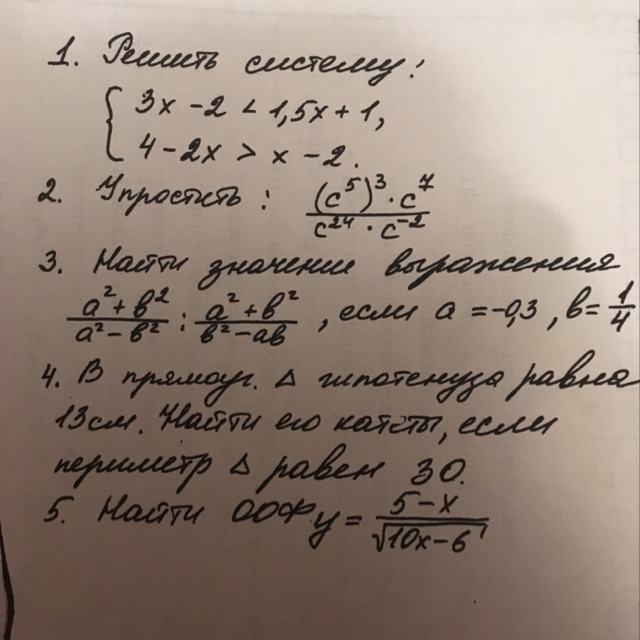 1. Решить систему:
{ 3x - 2 < 1,5x + 1,
4 - 2x > x - 2.
2. Упростить: (c^5)^3 · c^7 / c^24 · c^-2
3. Найти значение выражения
a^2 + b^2 / a^2 - b^2 : a^2 + b^2 / b^2 - ab , если a = -0,3, b = 1/4
4. В прямоуг. △ гипотенуза равна
13см. Найти его катеты, если
периметр △ равен 30.
5. Найти ООФ y = 5 - x / √10x - 6